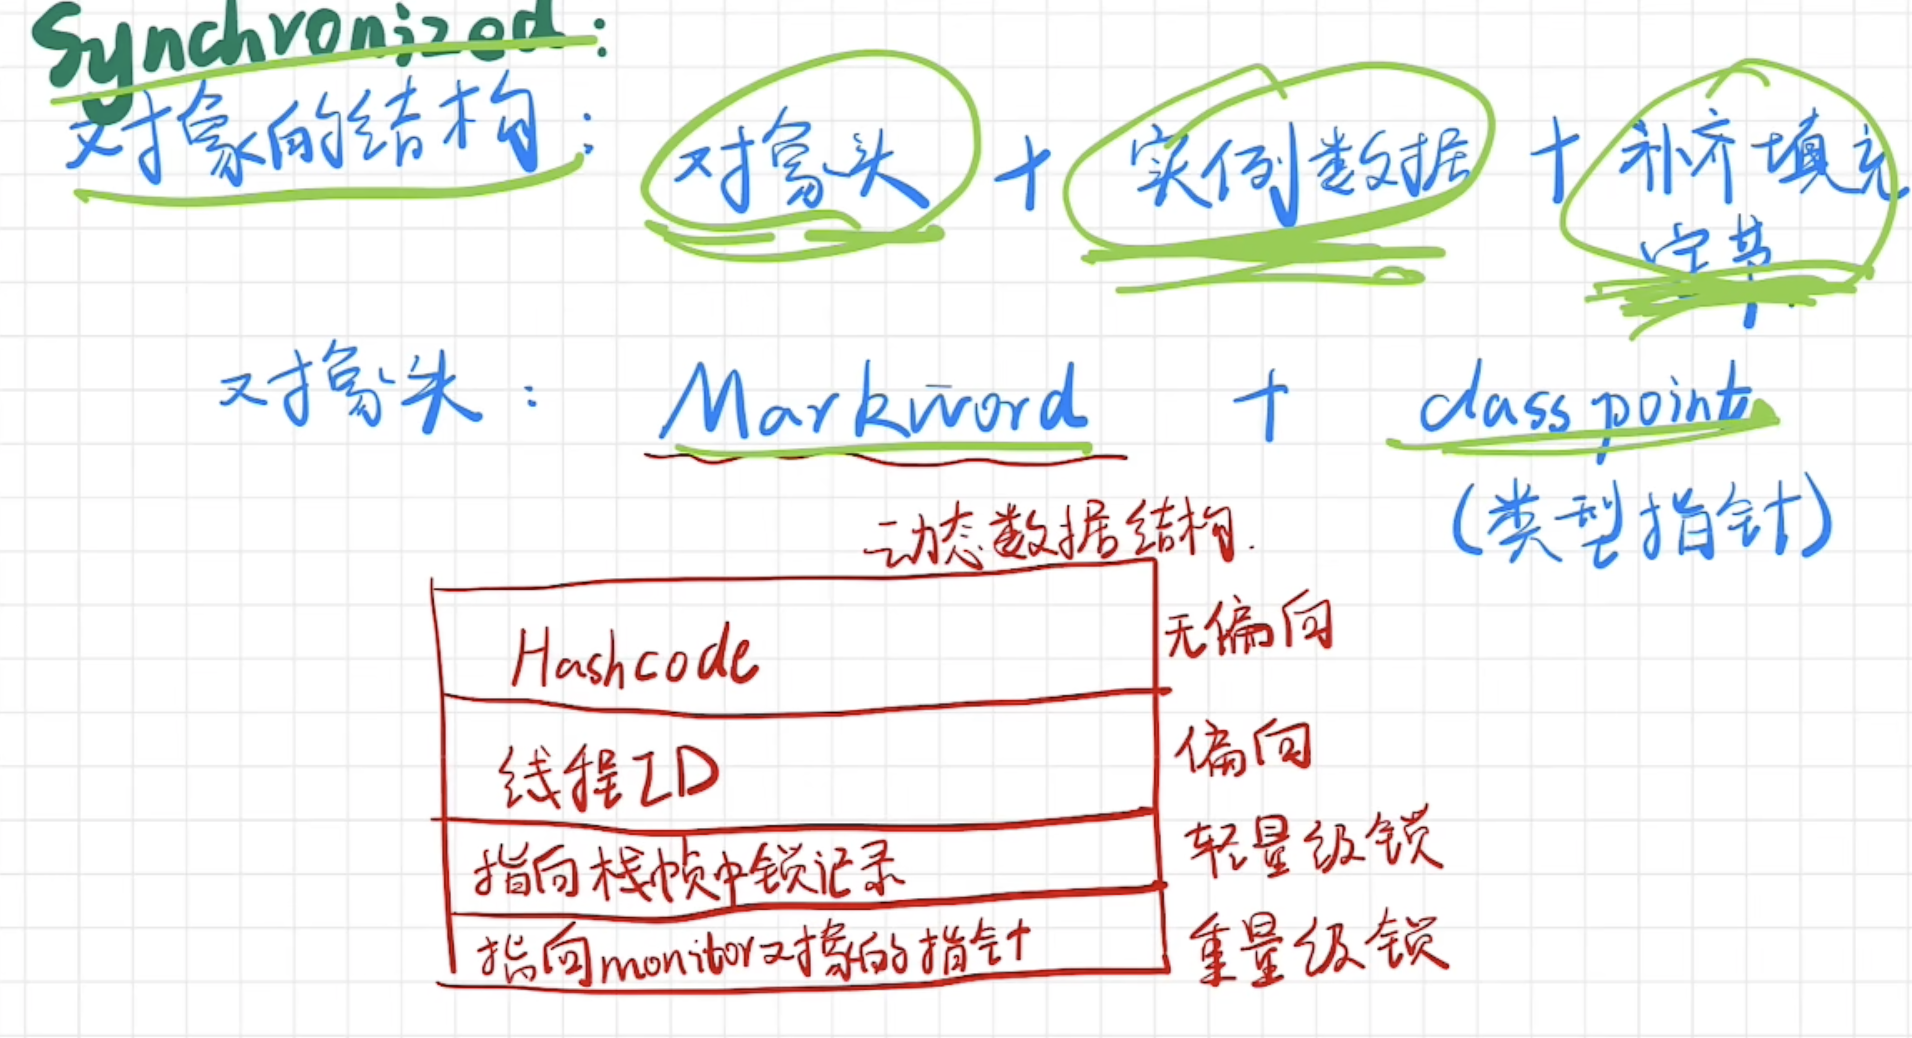 Synchronized:
对象的结构: 对象头 + 实例数据 + 补齐填充
字节
对象头: Markword + class point
(类型指针)
动态数据结构.
Hashcode 无偏向
线程ID 偏向
指向栈帧中锁记录 轻量级锁
指向monitor对象的指针 重量级锁